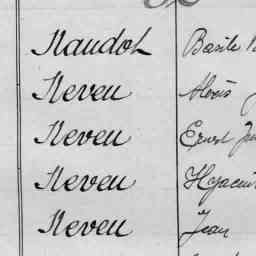 Naudot Basile
Neveu Alexis
Neveu Ernest
Neveu Hyacin
Neveu Jean